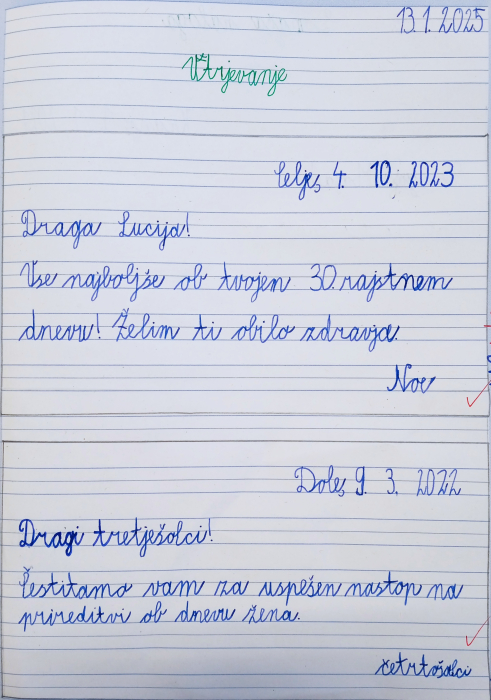 13.1.2025
Utrjevanje
Celje, 4. 10. 2023
Draga Lucija!
Vse najboljše ob tvojen 30. rajstnem
dnevu! Želim ti obilo zdravja.
Noe
Dole, 9. 3. 2022
Dragi tretješolci!
Čestitamo vam za uspešen nastop na
prireditvi ob dnevu žena.
četrtošolci